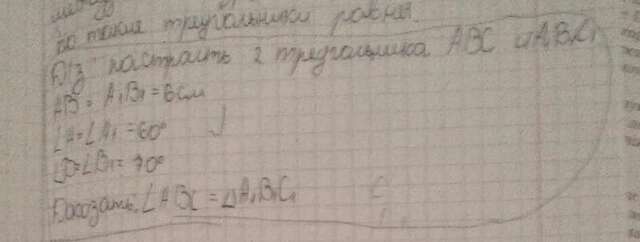 то такие треугольники равны.
Д/з построить 2 треугольника ABC и A₁B₁C₁
AB = A₁B₁ = 6 см
∠A = ∠A₁ = 60°
∠B = ∠B₁ = 70°
Доказать: ∠ABC = △A₁B₁C₁